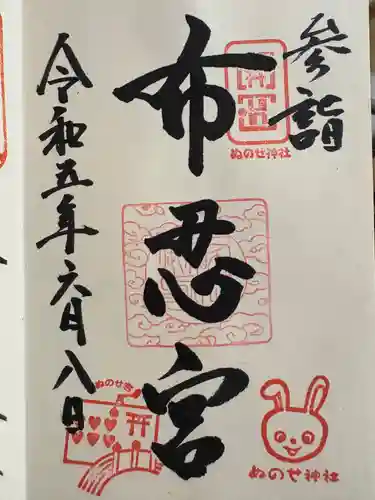 参詣
布忍宮
令和五年六月八日
ぬのせ神社
ぬのせ宮
ぬのせ神社